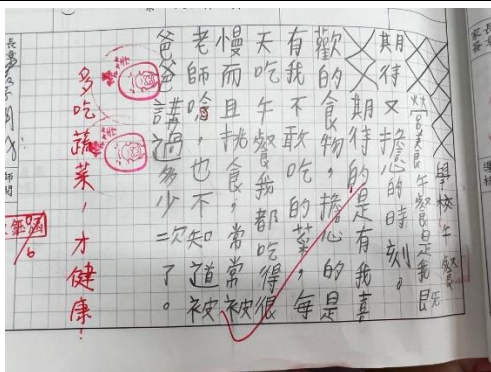 學校午餐
營養午餐是我既
期待又擔心的時刻。
期待的是有我喜
歡的食物，擔心的是
有我不敢吃的菜，每
天吃午餐我都吃得很
慢而且挑食，常常被
老師唸，也不知道被
爸爸講過多少次了。
多吃蔬菜，才健康！